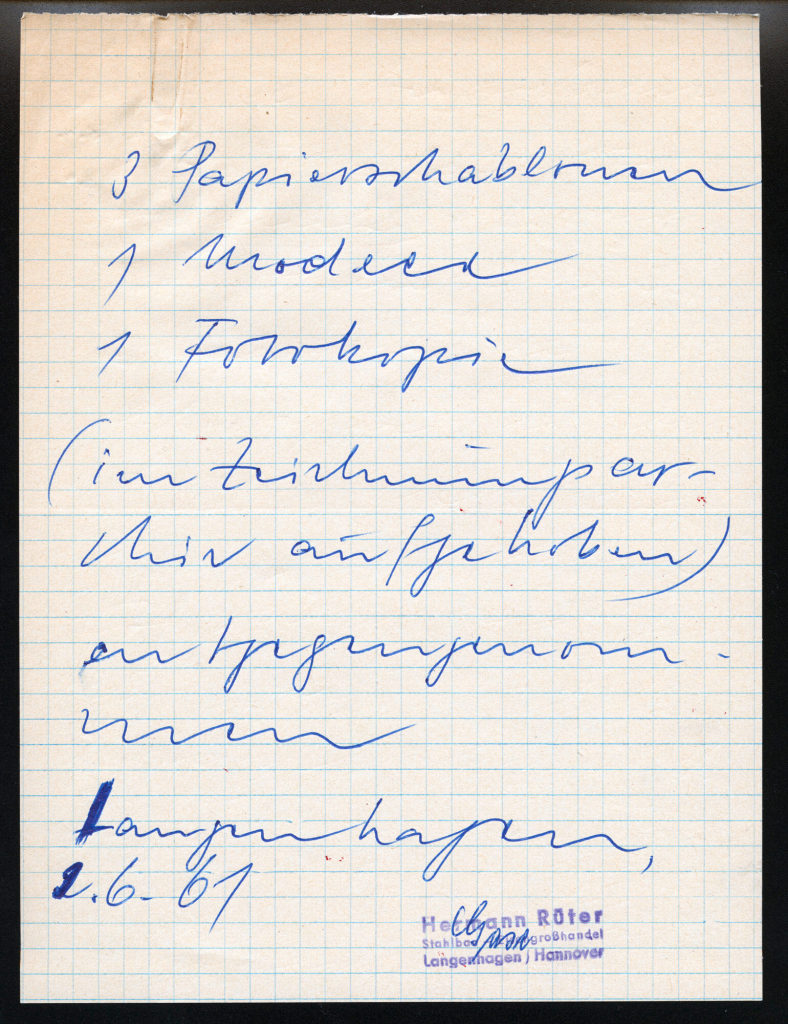 3 Papierschablonen
1 Modell
1 Fotokopie
(im Zeichnungsar-
chiv aufgehoben)
entgegengenom-
men
Langenhagen,
2.6.61
Hermann Rüter
großhandel
Langenhagen / Hannover